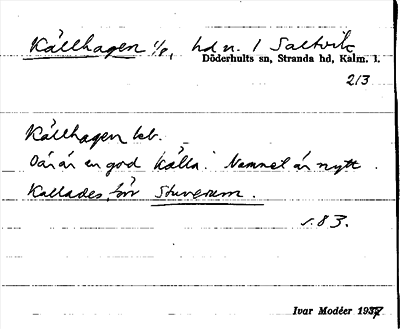 Källhagen 1/8, hd n. 1 Saltvik
Döderhults sn, Stranda hd, Kalm. l.
213
Källhagen lb.
Där är en god källa. Namnet är nytt.
Kallades förr Stuverum.
s. 83.
Ivar Modéer 1937